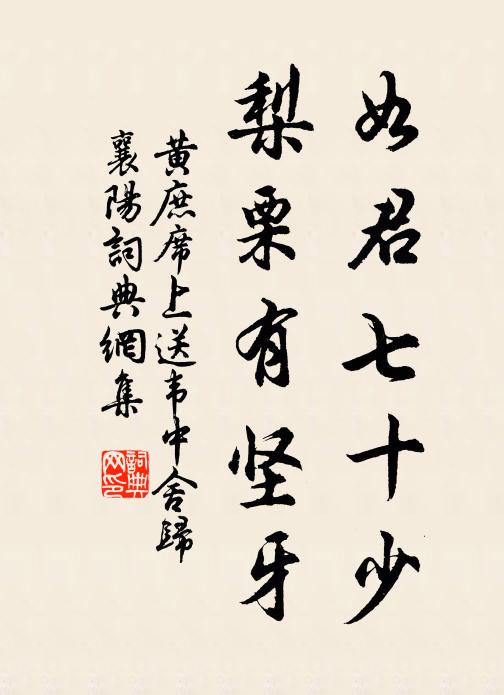 如君七十少
梨栗有坚牙
黄庶席上送韦中舍歸
襄陽詞典網集
詞典網印